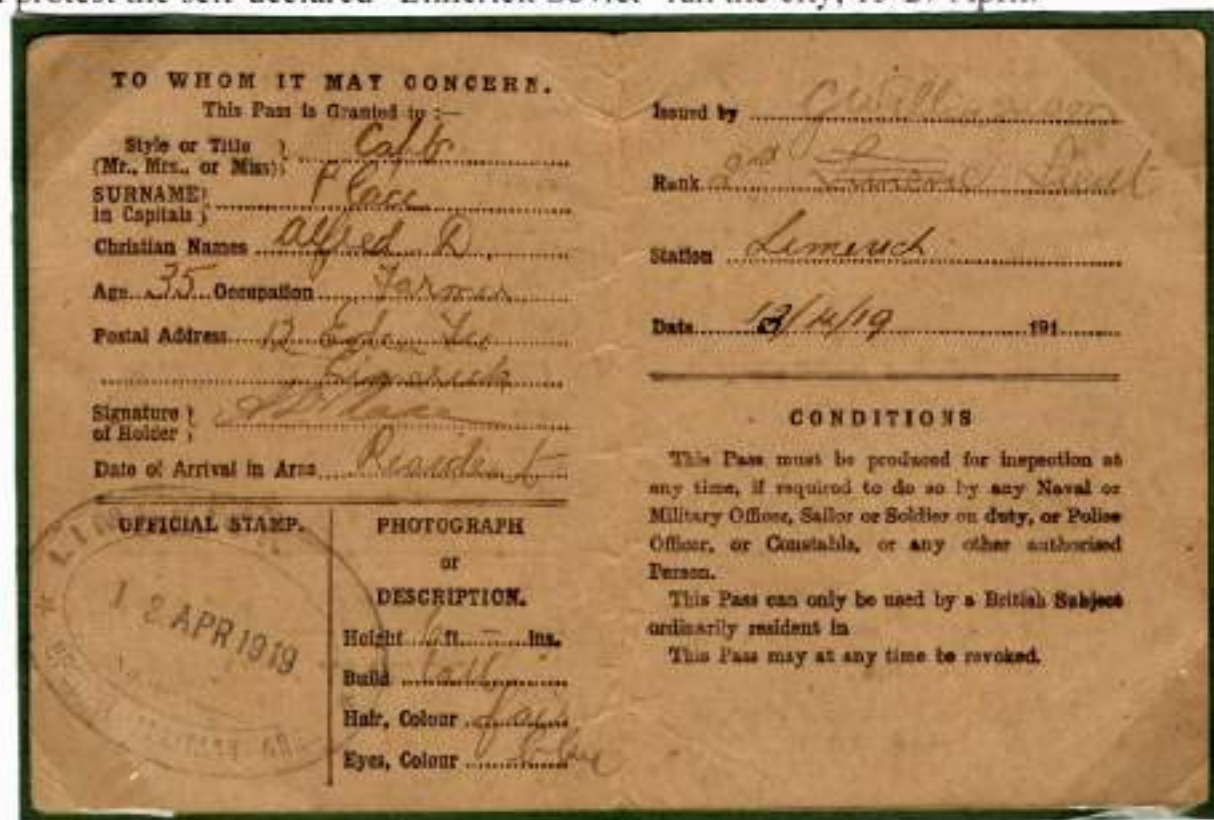 protest the self-declared "Limerick Soviet" ran the city,
TO WHOM IT MAY CONCERN.
This Pass is Granted to :—
Style or Title } Capt.
(Mr., Mrs., or Miss)
SURNAME } Place
in Capitals
Christian Names Alfred D.
Age 35 Occupation Farmer
Postal Address 12 Eden
Limerick
Signature }
of Holder ; Place
Date of Arrival in Area Resident
OFFICIAL STAMP.
12 APR 1919
PHOTOGRAPH
or
DESCRIPTION.
Height 6 ft. — ins.
Build
Hair, Colour fair
Eyes, Colour blue
Issued by
Rank 2nd Lieut
Station Limerick
Date /19 191
CONDITIONS
This Pass must be produced for inspection at
any time, if required to do so by any Naval or
Military Officer, Sailor or Soldier on duty, or Police
Officer, or Constable, or any other authorised
Person.
This Pass can only be used by a British Subject
ordinarily resident in
This Pass may at any time be revoked.